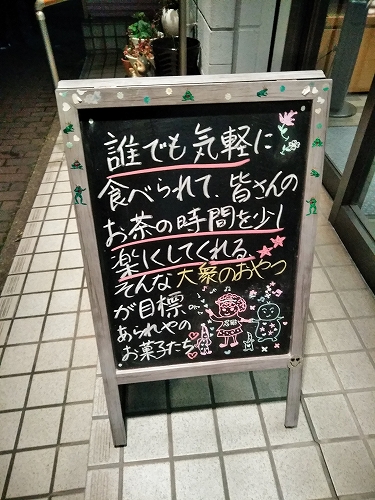 誰でも気軽に
食べられて、皆さんの
お茶の時間を少し
楽しくしてくれる
そんな大衆のおやつ
が目標
あられやの
お菓子たち